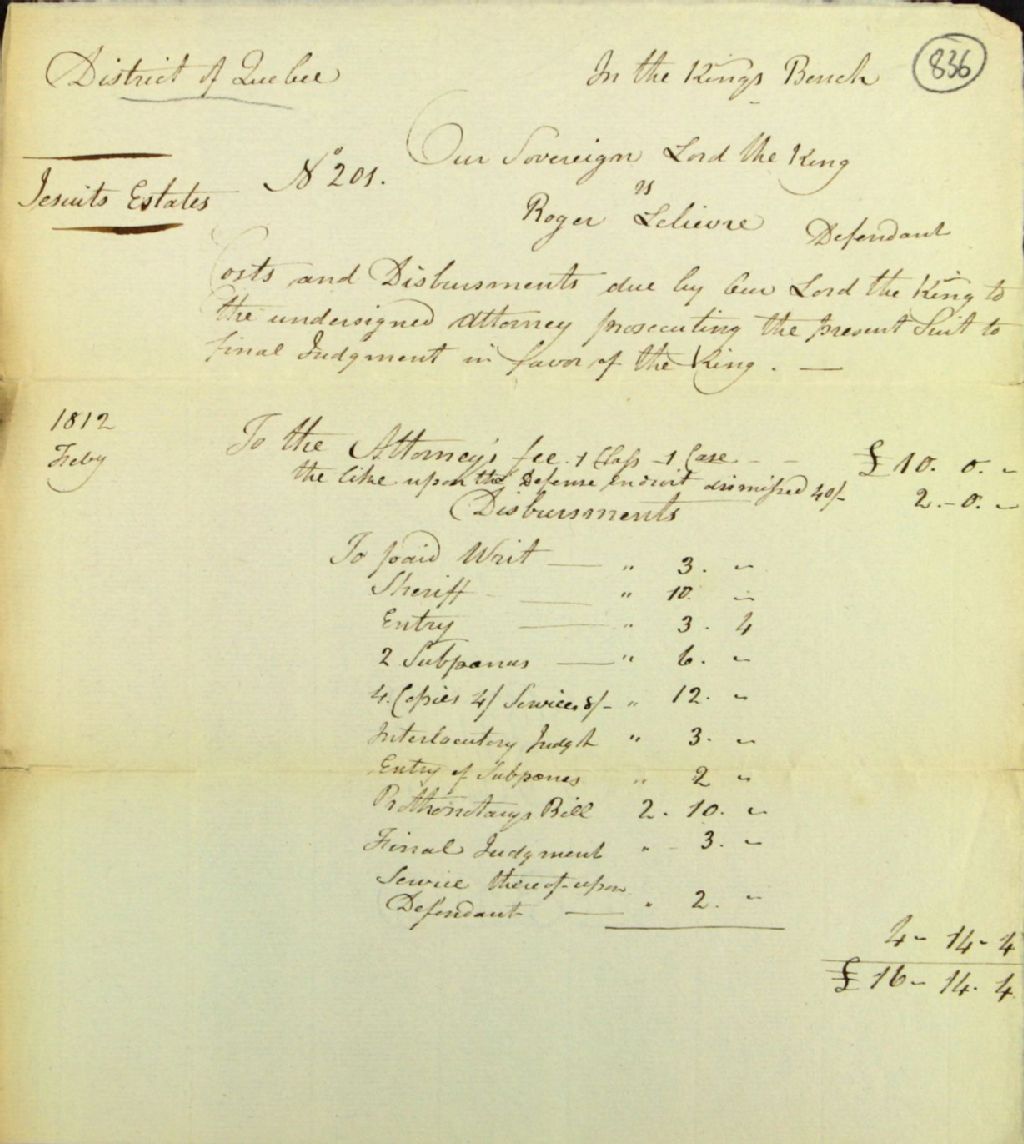 District of Quebec
In the Kings Bench
836
Our Sovereign Lord the King
No 201.
vs
Jesuits Estates
Roger Lelievre Defendant
Costs and Disbursments due by Our Lord the King to
the undersigned Attorney prosecuting the present Suit to
final Judgment in favor of the King. —
1812
Feby
To the Attorney's fee . 1 Class - 1 Case - - £10. 0. "
the like upon the Defense en droit dismissed 40/- 2. - 0. "
Disbursments
To paid Writ — " 3. "
Sheriff - — " 10. "
Entry — " 3. 4
2 Subpanas — " 6. "
4. Copies 4/ Services 8/- " 12. "
Interlocutory Judgt " 3. "
Entry of Subpanes " 2 "
Prothonotarys Bill 2. 10. "
Final Judgment " - 3. "
Service thereof upon
Defendant — " 2. "
4 - 14 - 4
£16 - 14. 4